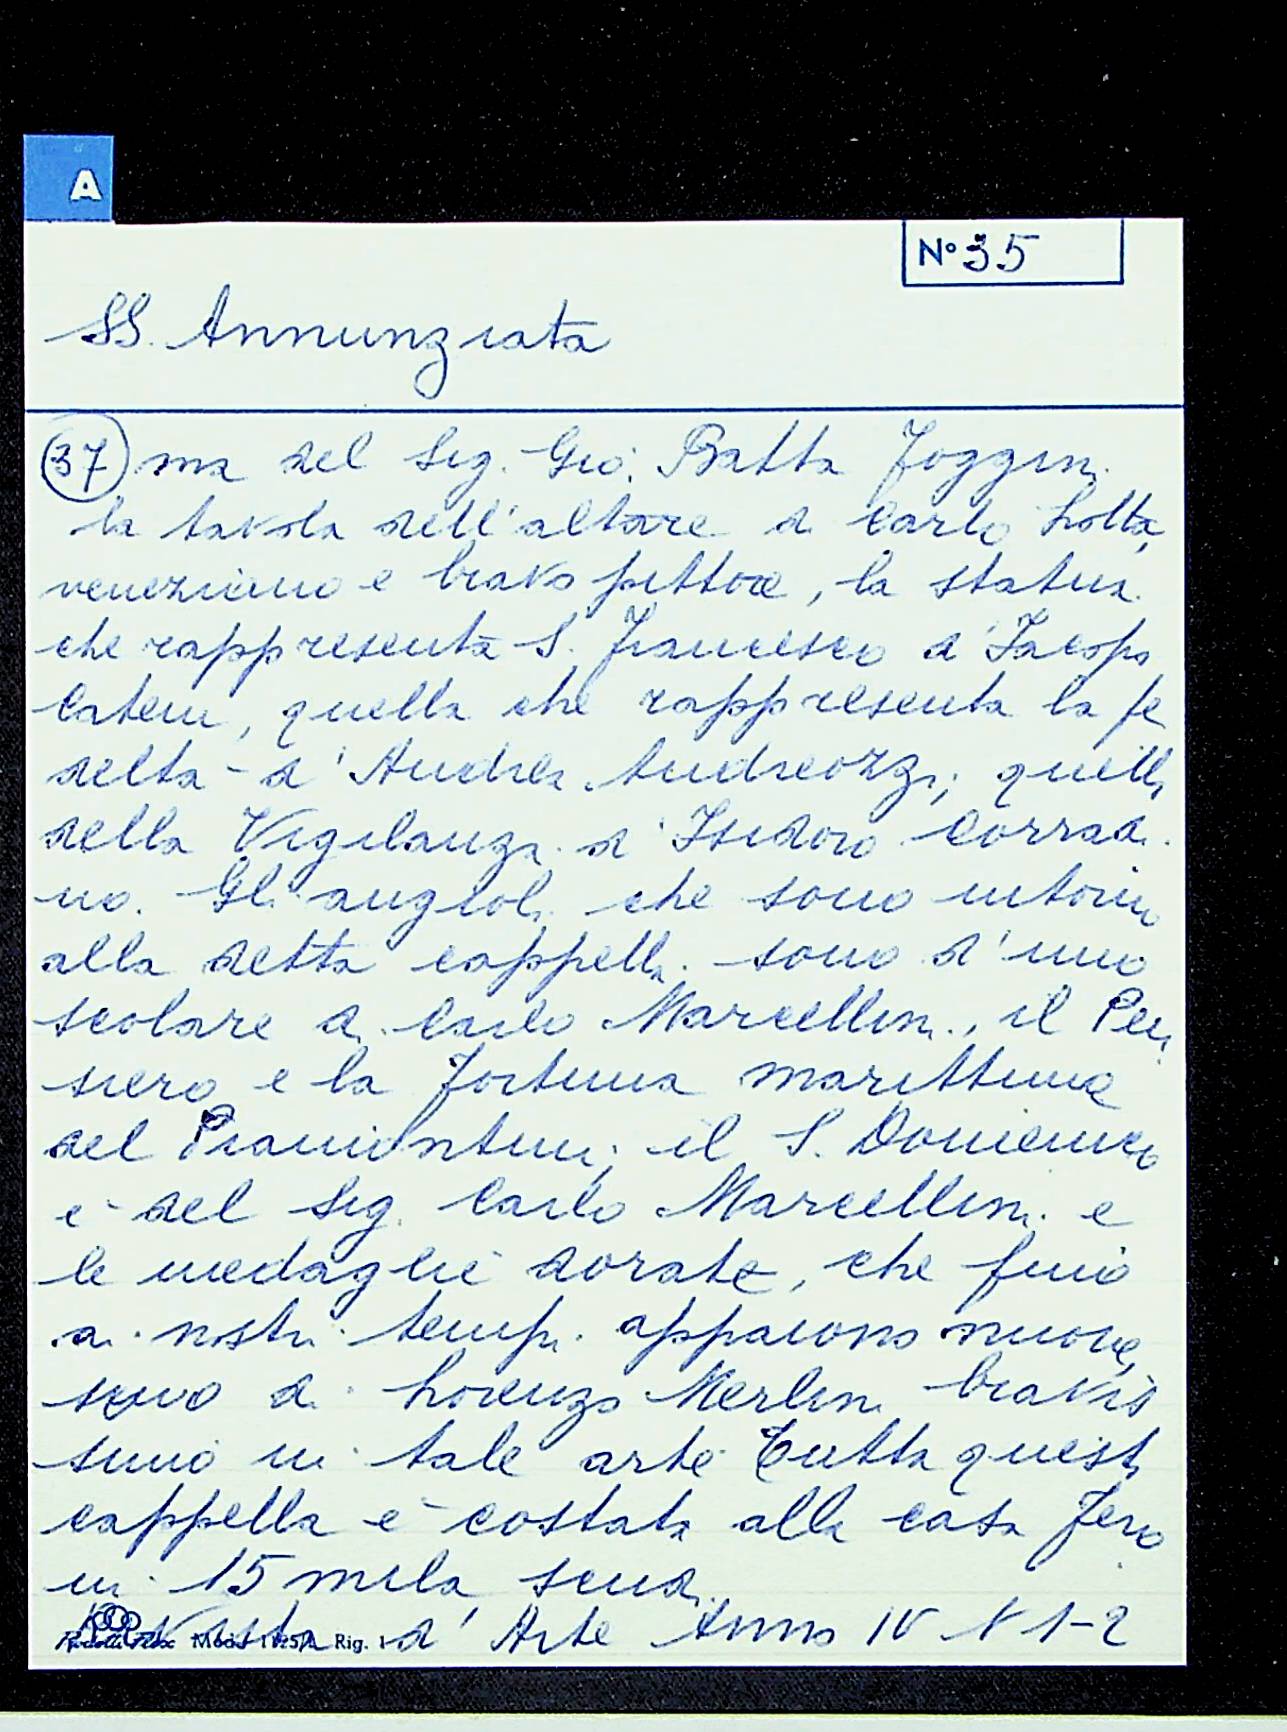 A
N° 35
SS. Annunziata
37 ma del Sig. Gio: Batta Foggini
la tavola dell'altare di Carlo Lotta,
veneziano e bravo pittore, la statua
che rappresenta S. Francesco d'Iacopo
Cateni, quella che rappresenta la fe
deltà d'Andrea Andreozzi; quella
della Vigilanza d'Isidoro Corradi
no. Gli angioli che sono intorno
alla detta cappella sono d'uno
scolare di Carlo Marcellini, il Pen
siero e la Fortuna marittima
del Piamontini; il S. Domenico
è del Sig. Carlo Marcellini e
le medaglie dorate, che fino
ai nostri tempi appaiono nuove,
sono di Lorenzo Merlini bravis
simo in tale arte Tutta questa
cappella è costata alla casa Fero
ni 15 mila scudi.
Rivista d'Arte Anno IV N 1-2
Mod. Rig. 1